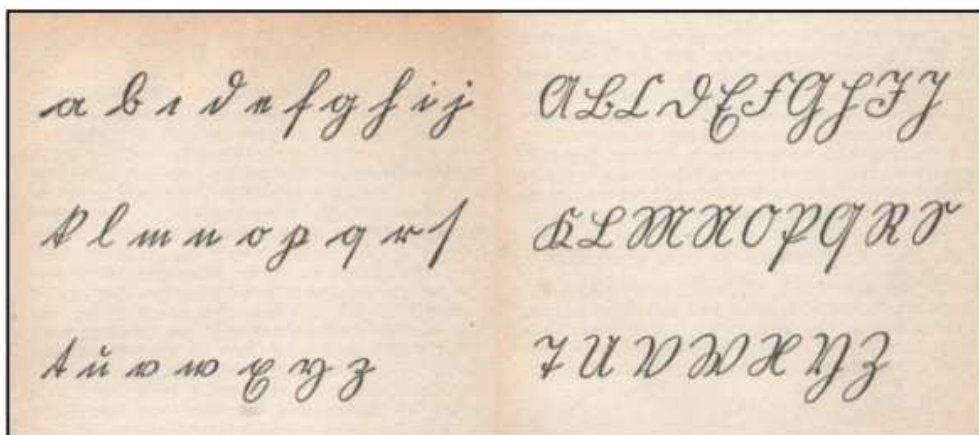 a b c d e f g h i j
k l m n o p q r s
t u v w x y z
A B C D E F G H I J
K L M N O P Q R S
T U V W X Y Z